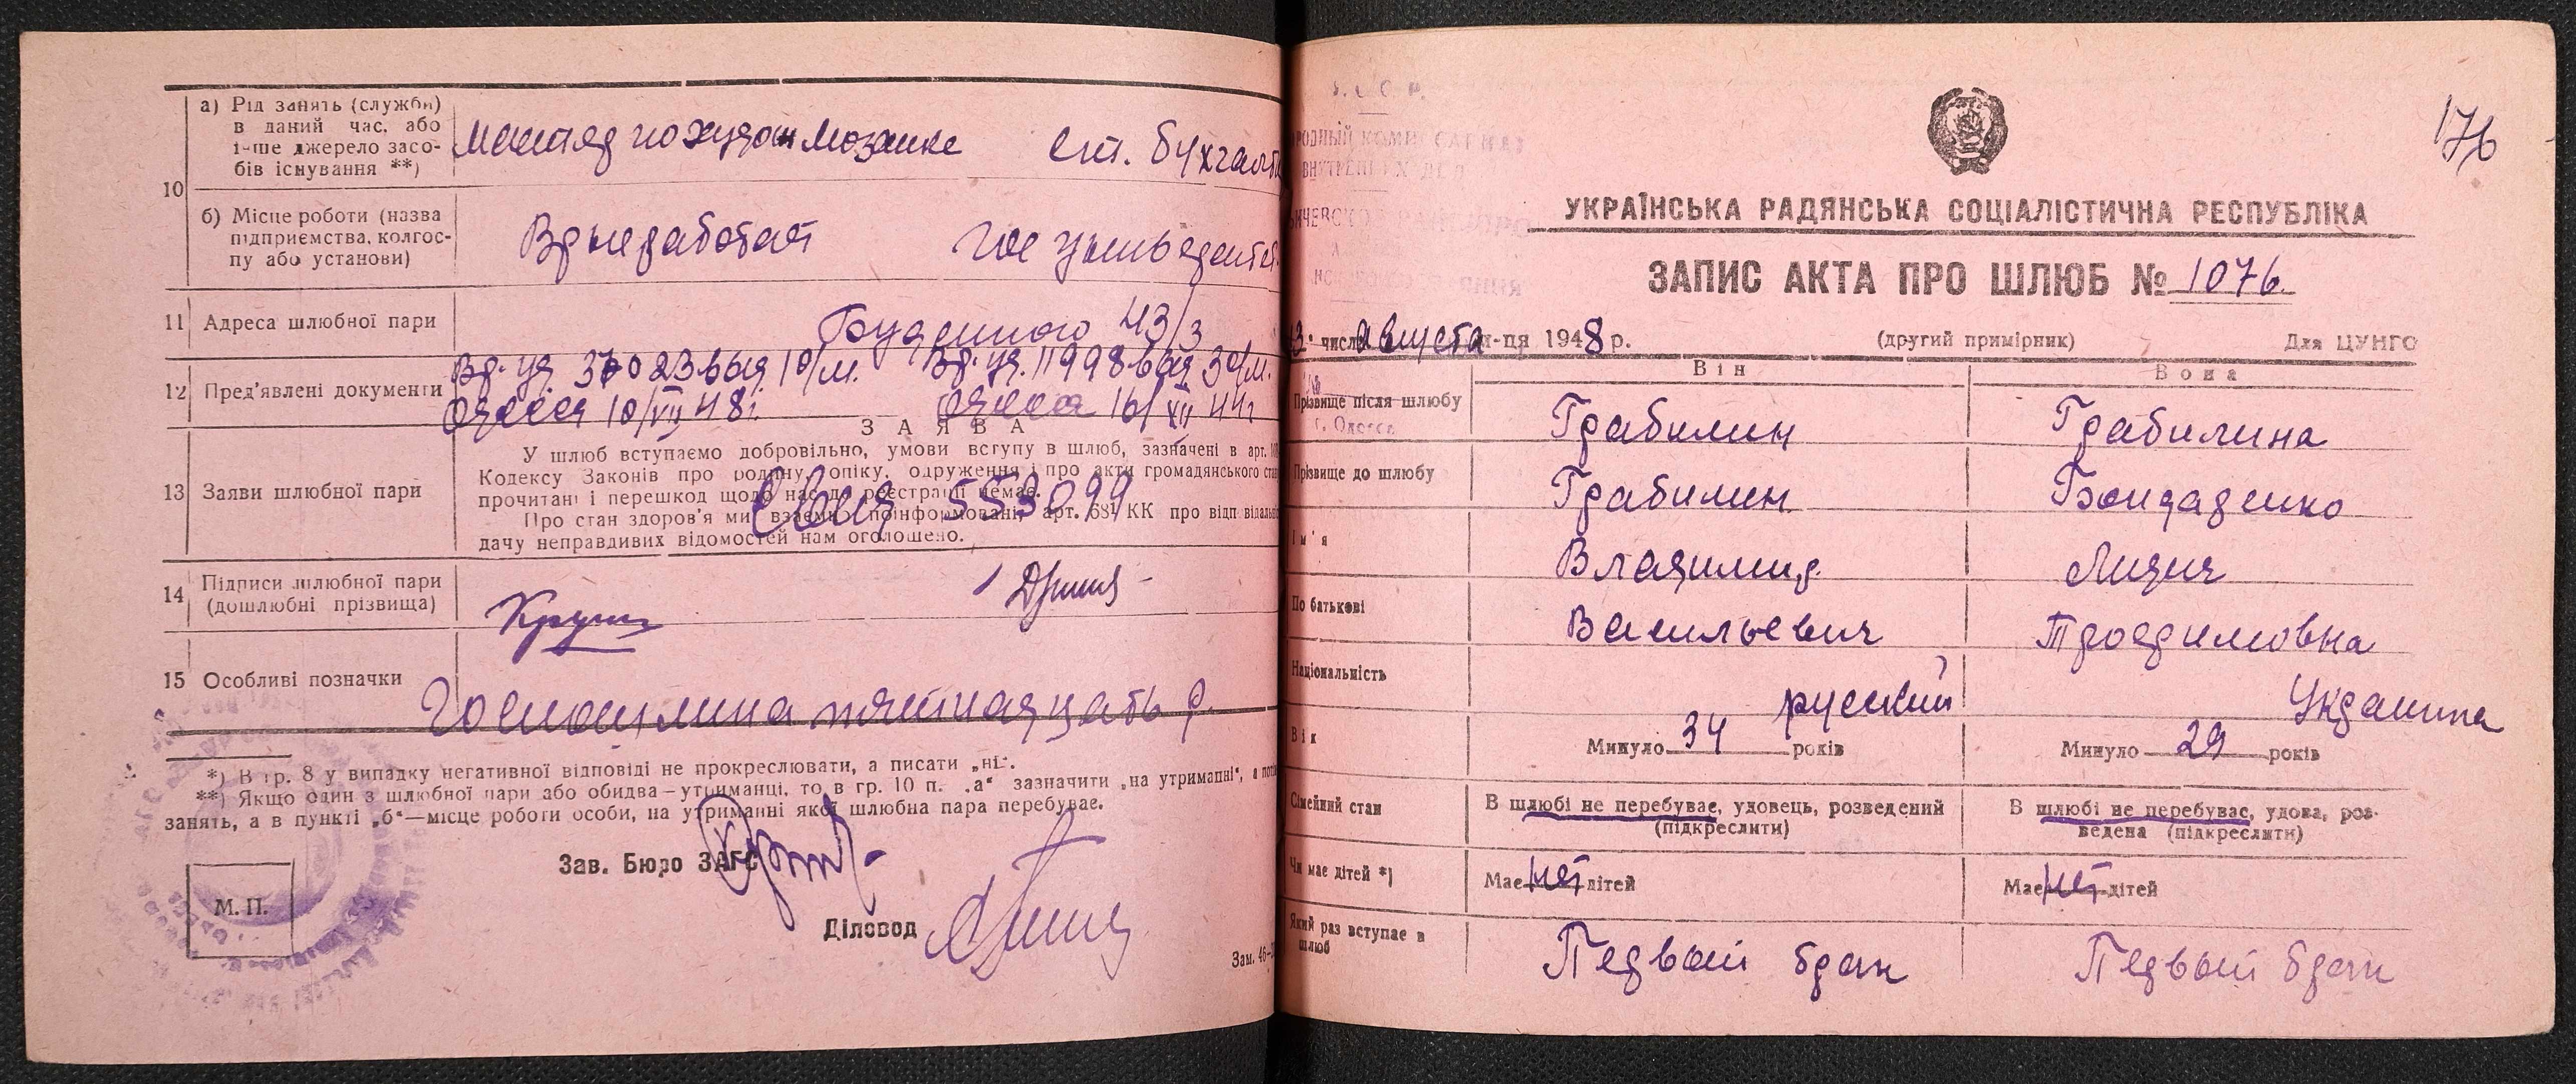 10
а) Рід занять (служби)
в даний час, або
інше джерело засо-
бів існування **)
по художн мозаике
ст. бухгалте
б) Місце роботи (назва
підприємства, колгос-
пу або установи)
Вр не работает
Гос
11 Адреса шлюбної пари
Буденного 43/3
12 Пред'явлені документи
Вр. уд. 37023 выд 10/м. Вр. уд. 11998 выд 3о/м.
Одесса 10/VII 48г. Одесса 16/XII 44г
ЗАЯВА
13 Заяви шлюбної пари
У шлюб вступаємо добровільно, умови вступу в шлюб, зазначені в арт.
Кодексу Законів про родину, опіку, одруження і про акти громадянського ста
прочитані і перешкод щодо нас до реєстрації немає.
Про стан здоров'я ми взаємно поінформовані, арт. КК про відповідальні
дачу неправдивих відомостей нам оголошено.
553099
14 Підписи шлюбної пари
(дошлюбні прізвища)
15 Особливі позначки
Госпошлина пятнадцать р.
*) В гр. 8 у випадку негативної відповіді не прокреслювати, а писати „ні".
**) Якщо один з шлюбної пари або обидва—утриманці, то в гр. 10 п. „а" зазначити „на утриманні", а
занять, а в пункті „б"—місце роботи особи, на утриманні якої шлюбна пара перебуває.
Зав. Бюро ЗАГС
М. П.
Діловод
Зам. 46
176
УКРАЇНСЬКА РАДЯНСЬКА СОЦІАЛІСТИЧНА РЕСПУБЛІКА
ЗАПИС АКТА ПРО ШЛЮБ № 1076.
числа августа м-ця 1948 р. (другий примірник) Для ЦУНГО
Він Вона
Прізвище після шлюбу Грабилин Грабилина
г. Одесса
Прізвище до шлюбу Грабилин Бондаренко
Ім'я Владимир Лидия
По батькові Васильевич Трофимовна
Національність русский Украинка
Вік Минуло 34 років Минуло 29 років
Сімейний стан В шлюбі не перебуває, удовець, розведений (підкреслити) В шлюбі не перебуває, удова, роз-
ведена (підкреслити)
Чи має дітей *) Має нет дітей Має нет дітей
Який раз вступає в
шлюб Первый брак Первый брак